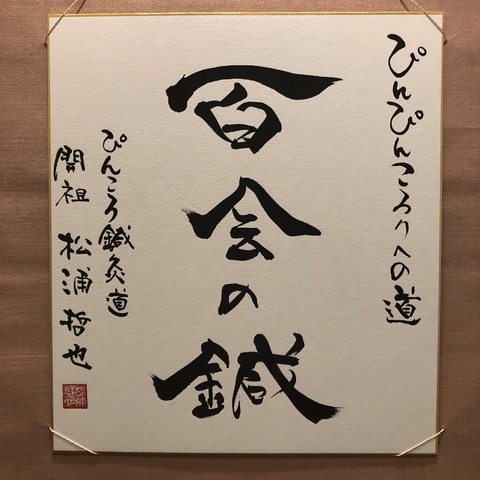 ぴんぴんころりへの道
百会の鍼
ぴんころ鍼灸道
開祖 松浦哲也